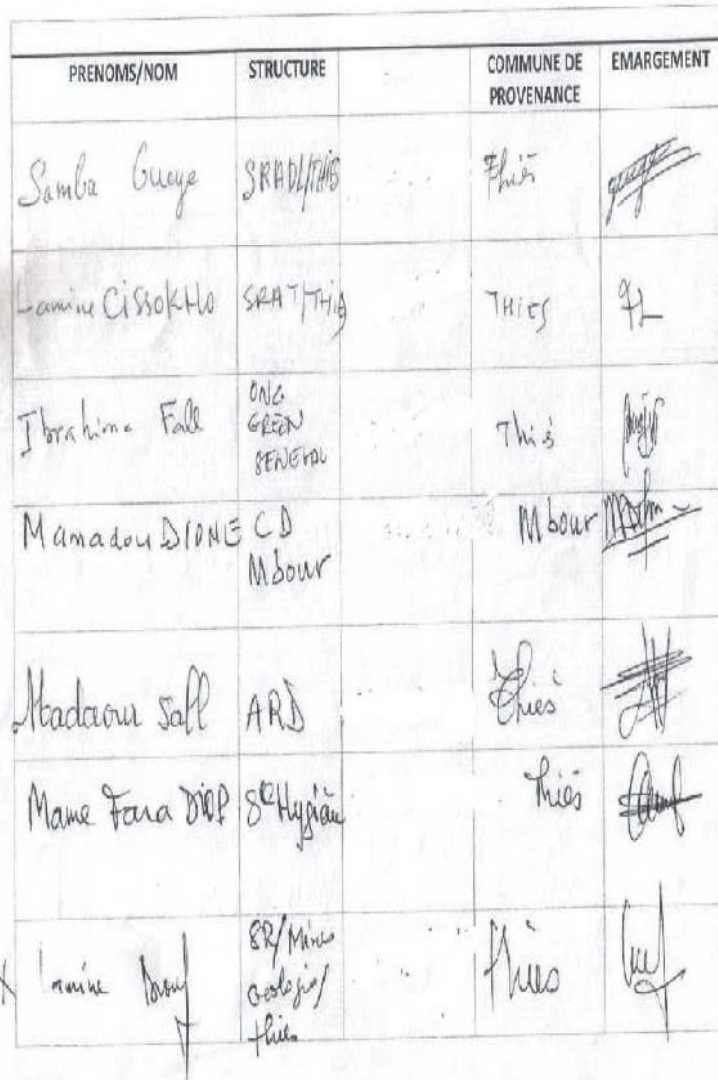 PRENOMS/NOM STRUCTURE COMMUNE DE PROVENANCE EMARGEMENT
Samba Gueye SRADL/THIES Thiès
Lamine CISSOKHO SRAT/THIES THIES
Ibrahima Fall ONG GREEN SENEGAL Thiès
Mamadou DIONE CD Mbour Mbour
Sall ARD Thiès
Mame Fara DIOP Sce Hygiène Thiès
Lamine SR/Mines Geologie/ thies Thiès